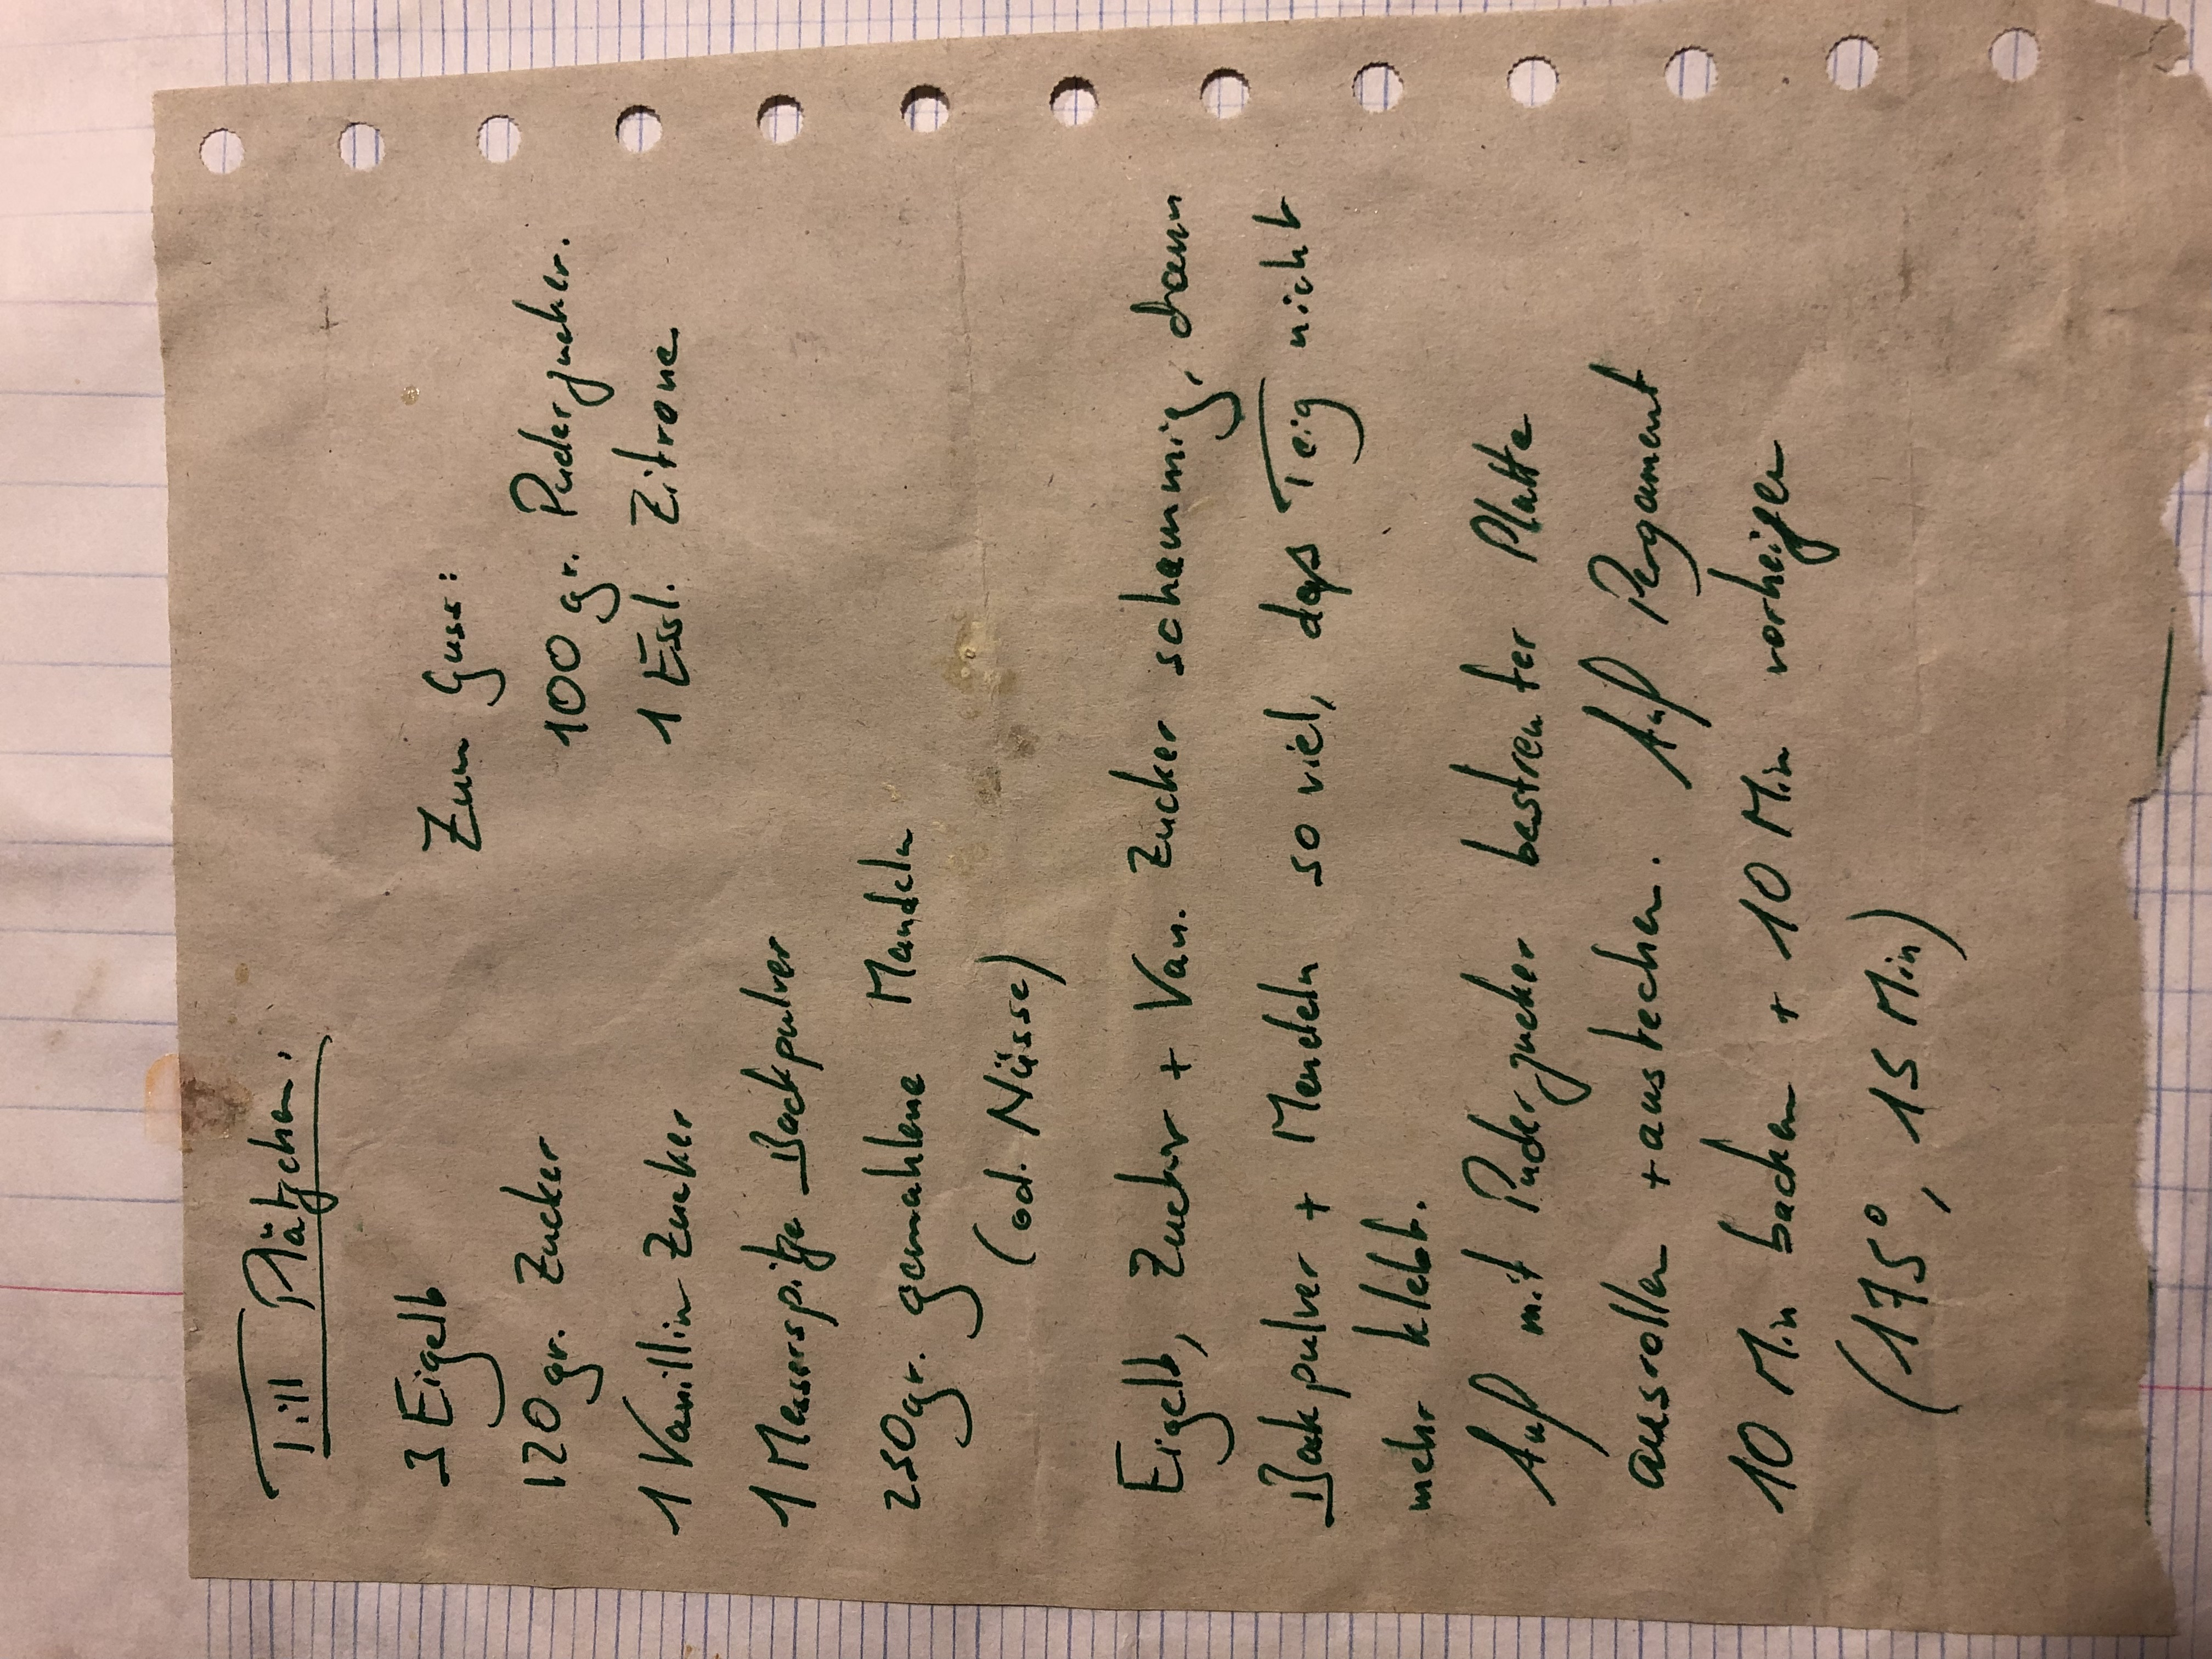 Till Plätzchen.
3 Eigelb
120 gr. Zucker
1 Vanillin Zucker
1 Messerspitze Backpulver
250 gr. gemahlene Mandeln
(od. Nüsse)
Zum Guss:
100 gr. Puderzucker.
1 Essl. Zitrone
Eigelb, Zucker + Van. Zucker schaumig, dann
Backpulver + Mandeln so viel, daß Teig nicht
mehr klebt.
Auf mit Puderzucker bestreuter Platte
ausrollen + ausstechen. Auf Pergament
10 Min backen + 10 Min vorheizen
(175°, 15 Min)